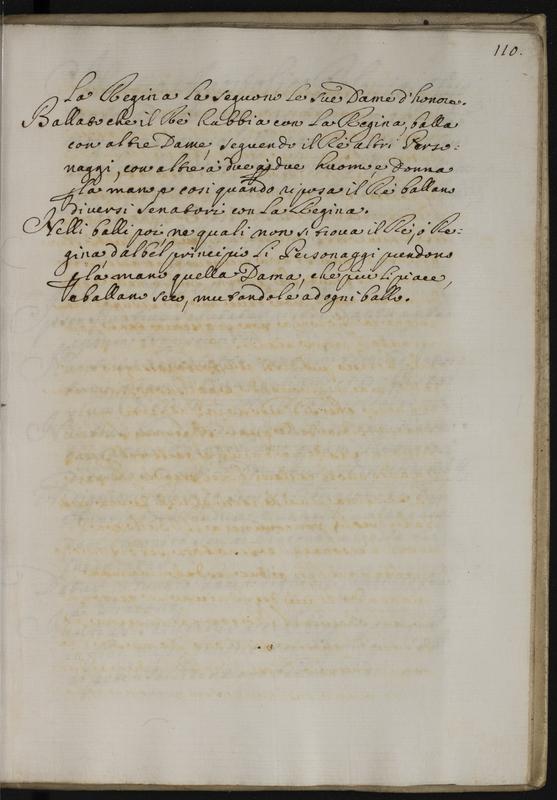 110.
La Regina la seguono le sue Dame d'honore.
Ballato che il Rè habbia con La Regina, balla
con altre Dame, seguendo il Rè altri Perso:
naggi, con altre à due à due huomo, e Donna
la mano, e cosi quando riposa il Rè ballano
diversi senatori con La Regina.
Nelli balli poi ne quali non si trova il Rè, ò Re:
gina dal bel principio li Personaggi prendono
la mano quella Dama, che più li piace,
e ballano seco, mutandole ad ogni ballo.